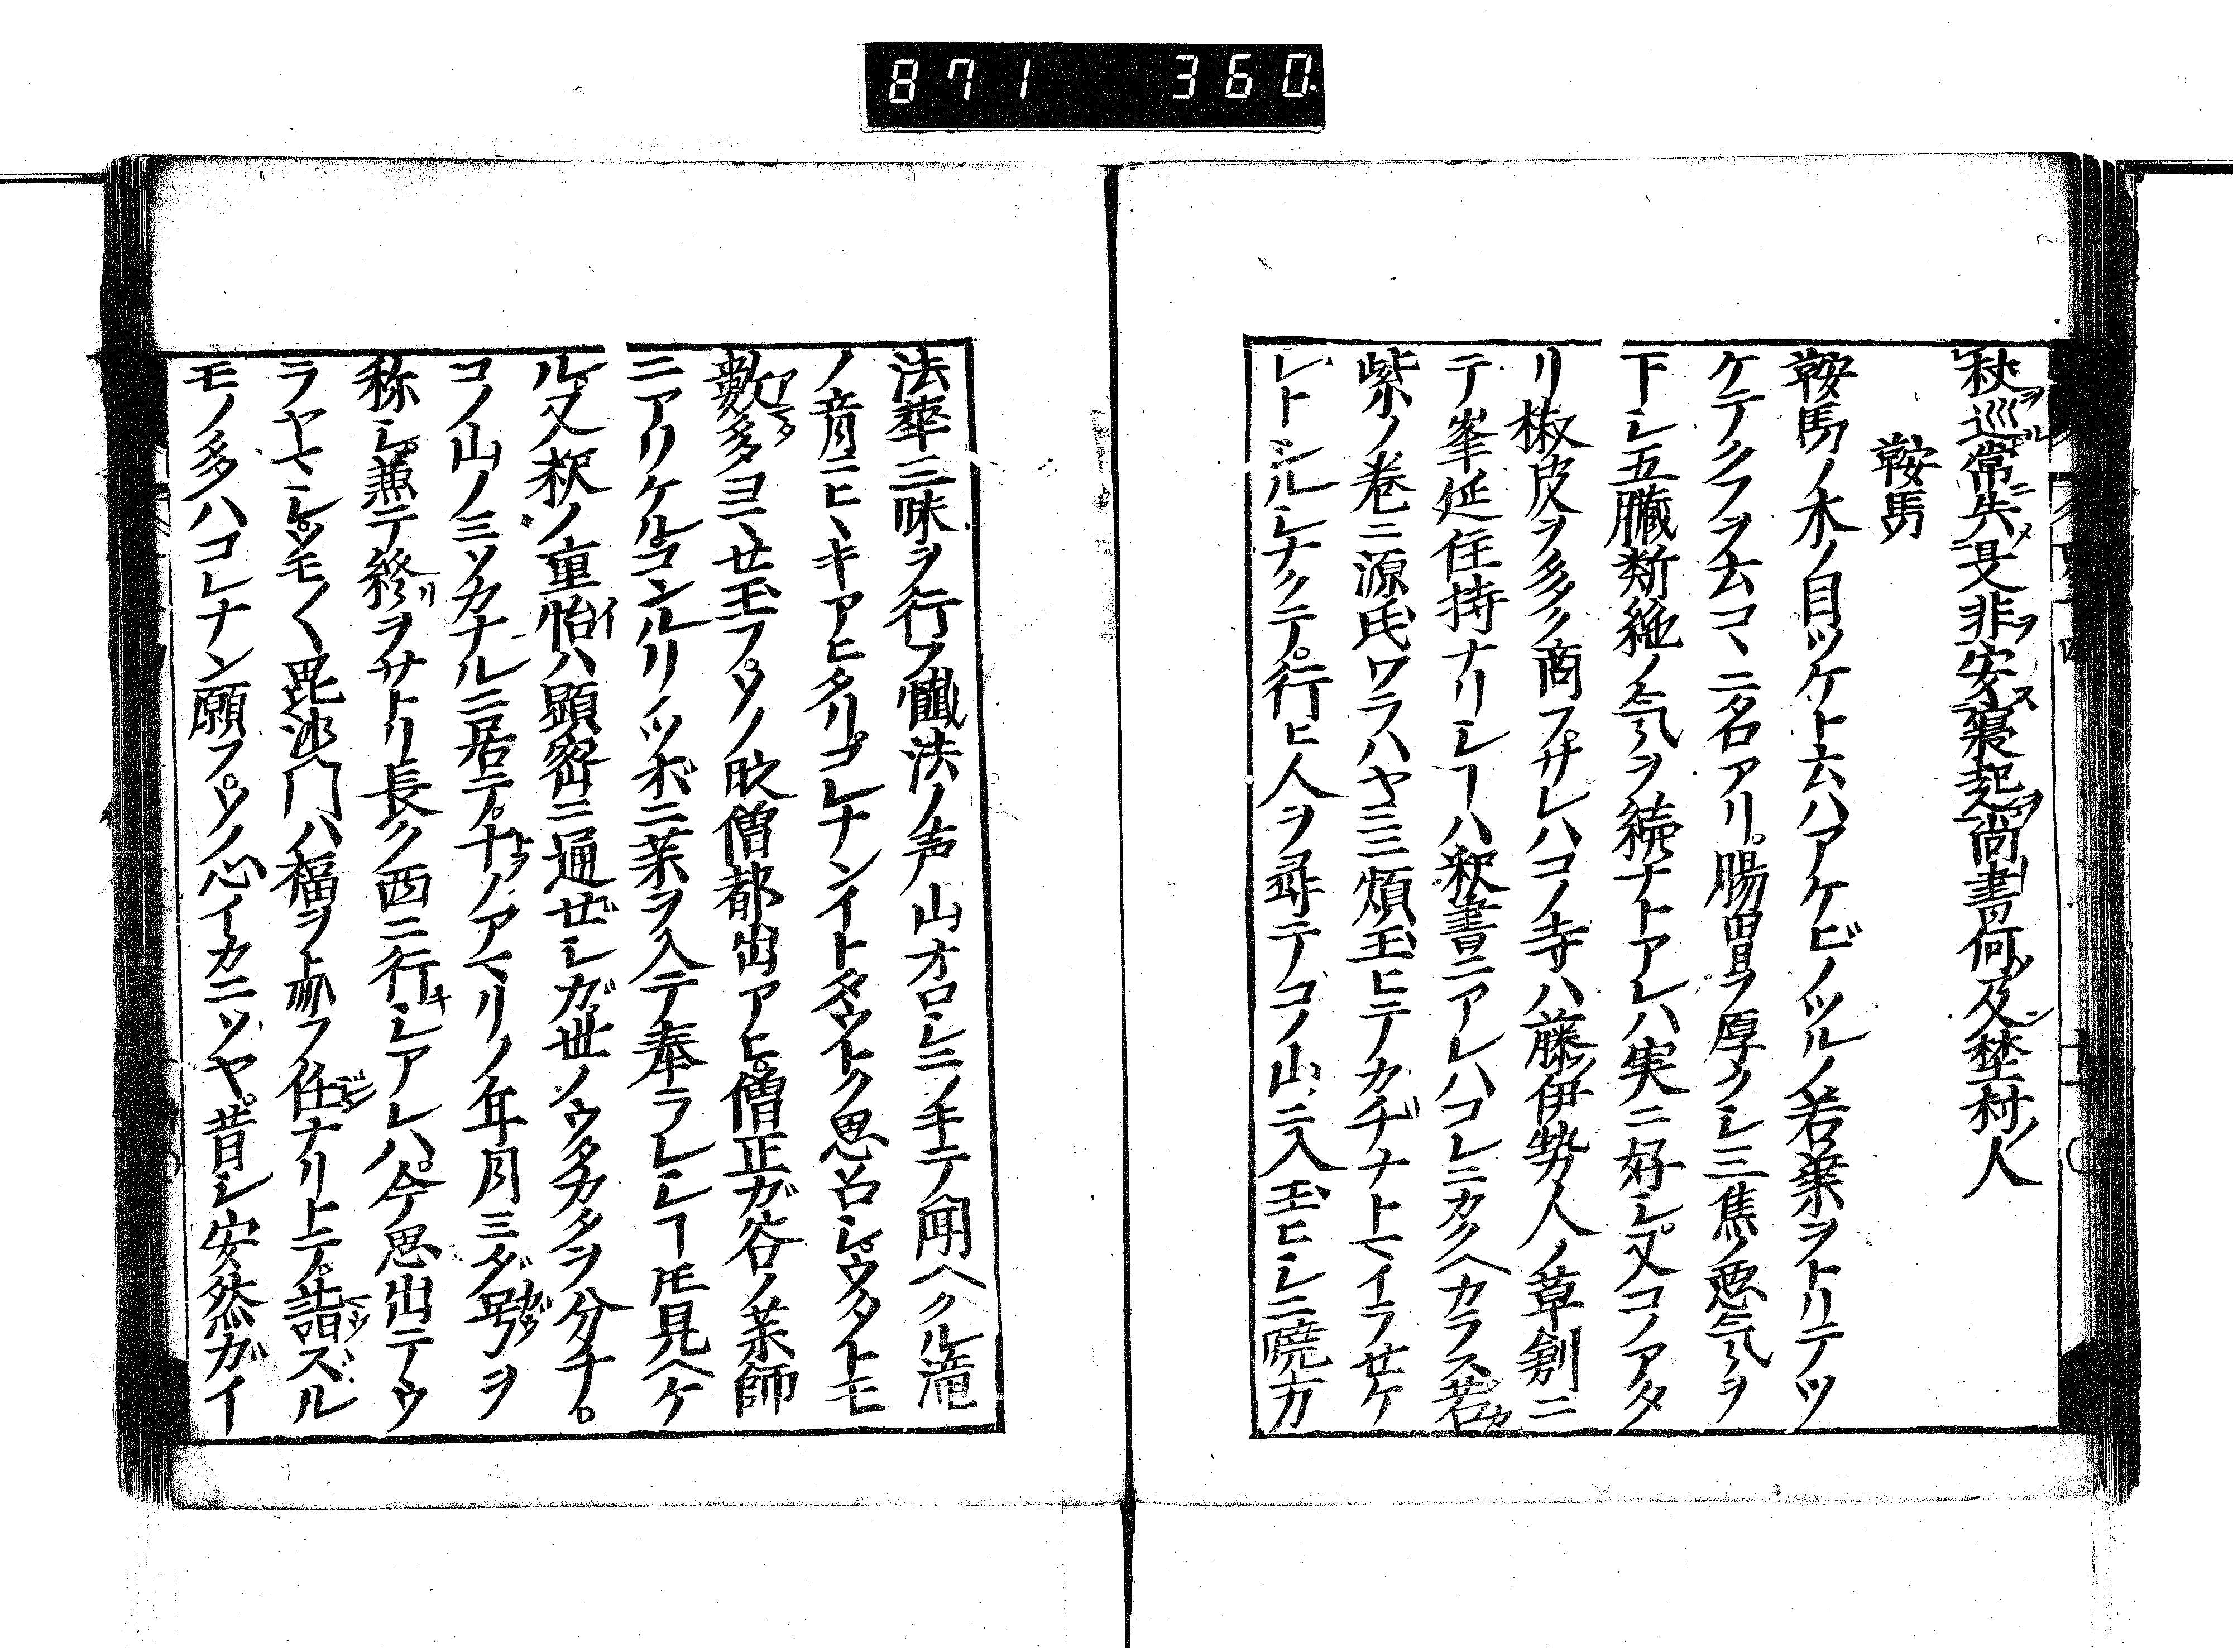 871 360
秋巡常失是非安寝起尚書何及埜村人
鞍馬
鞍馬ノ木ノ目ツケト云ハアケビノツルノ若葉ヲトリテツ
ケテクフヲ云コヽニ名アリ。腸胃ヲ厚クシ三焦ノ悪気ヲ
下シ五臓断絶ノ気ヲ続ナトアレハ実ニ好シ。又コノアタ
リ椒皮ヲ多ク商フ。サレハコノ寺ハ藤ノ伊勢人ノ草創ニ
テ峯延住持ナリシヿハ釈書ニアレハコレニカクヘカラス。若
紫ノ巻ニ源氏ワラハヤミニ煩玉ヒテカヂナトマイラセケ
レトシルシナクテ。行ヒ人ヲ尋テコノ山ニ入玉ヒシニ暁方
法華三昧ヲ行フ懺法ノ声山オロシニノキテ聞ヘクル滝
ノ音ニヒヽキアヒタリ。コレナンイトタウトク思召シ。ウタトモ
数多ヨマセ玉フ。ソノ𣅜僧都出アヒ。僧正ガ谷ノ薬師
ニアリケル。コンルリノツボニ薬ヲ入テ奉ラレシヿ𪜈見ヘケ
ル又釈ノ重怡ハ顕密ニ通ゼシガ。世ノウタカタヲ分チ。
コノ山ノミツカナルニ居テ。十ノアマリノ年月ミダ号ヲ
称シ。兼テ終リヲサトリ長ク西ニ行キシアレハ。今思出テウ
ラヤマシ。ソモ〱毘沙門ハ福ヲ賜フ任ナリ上テ。詣ズル
モノ多ハコレナン願フ。ソノ心イカニソヤ。昔シ安然ガイ